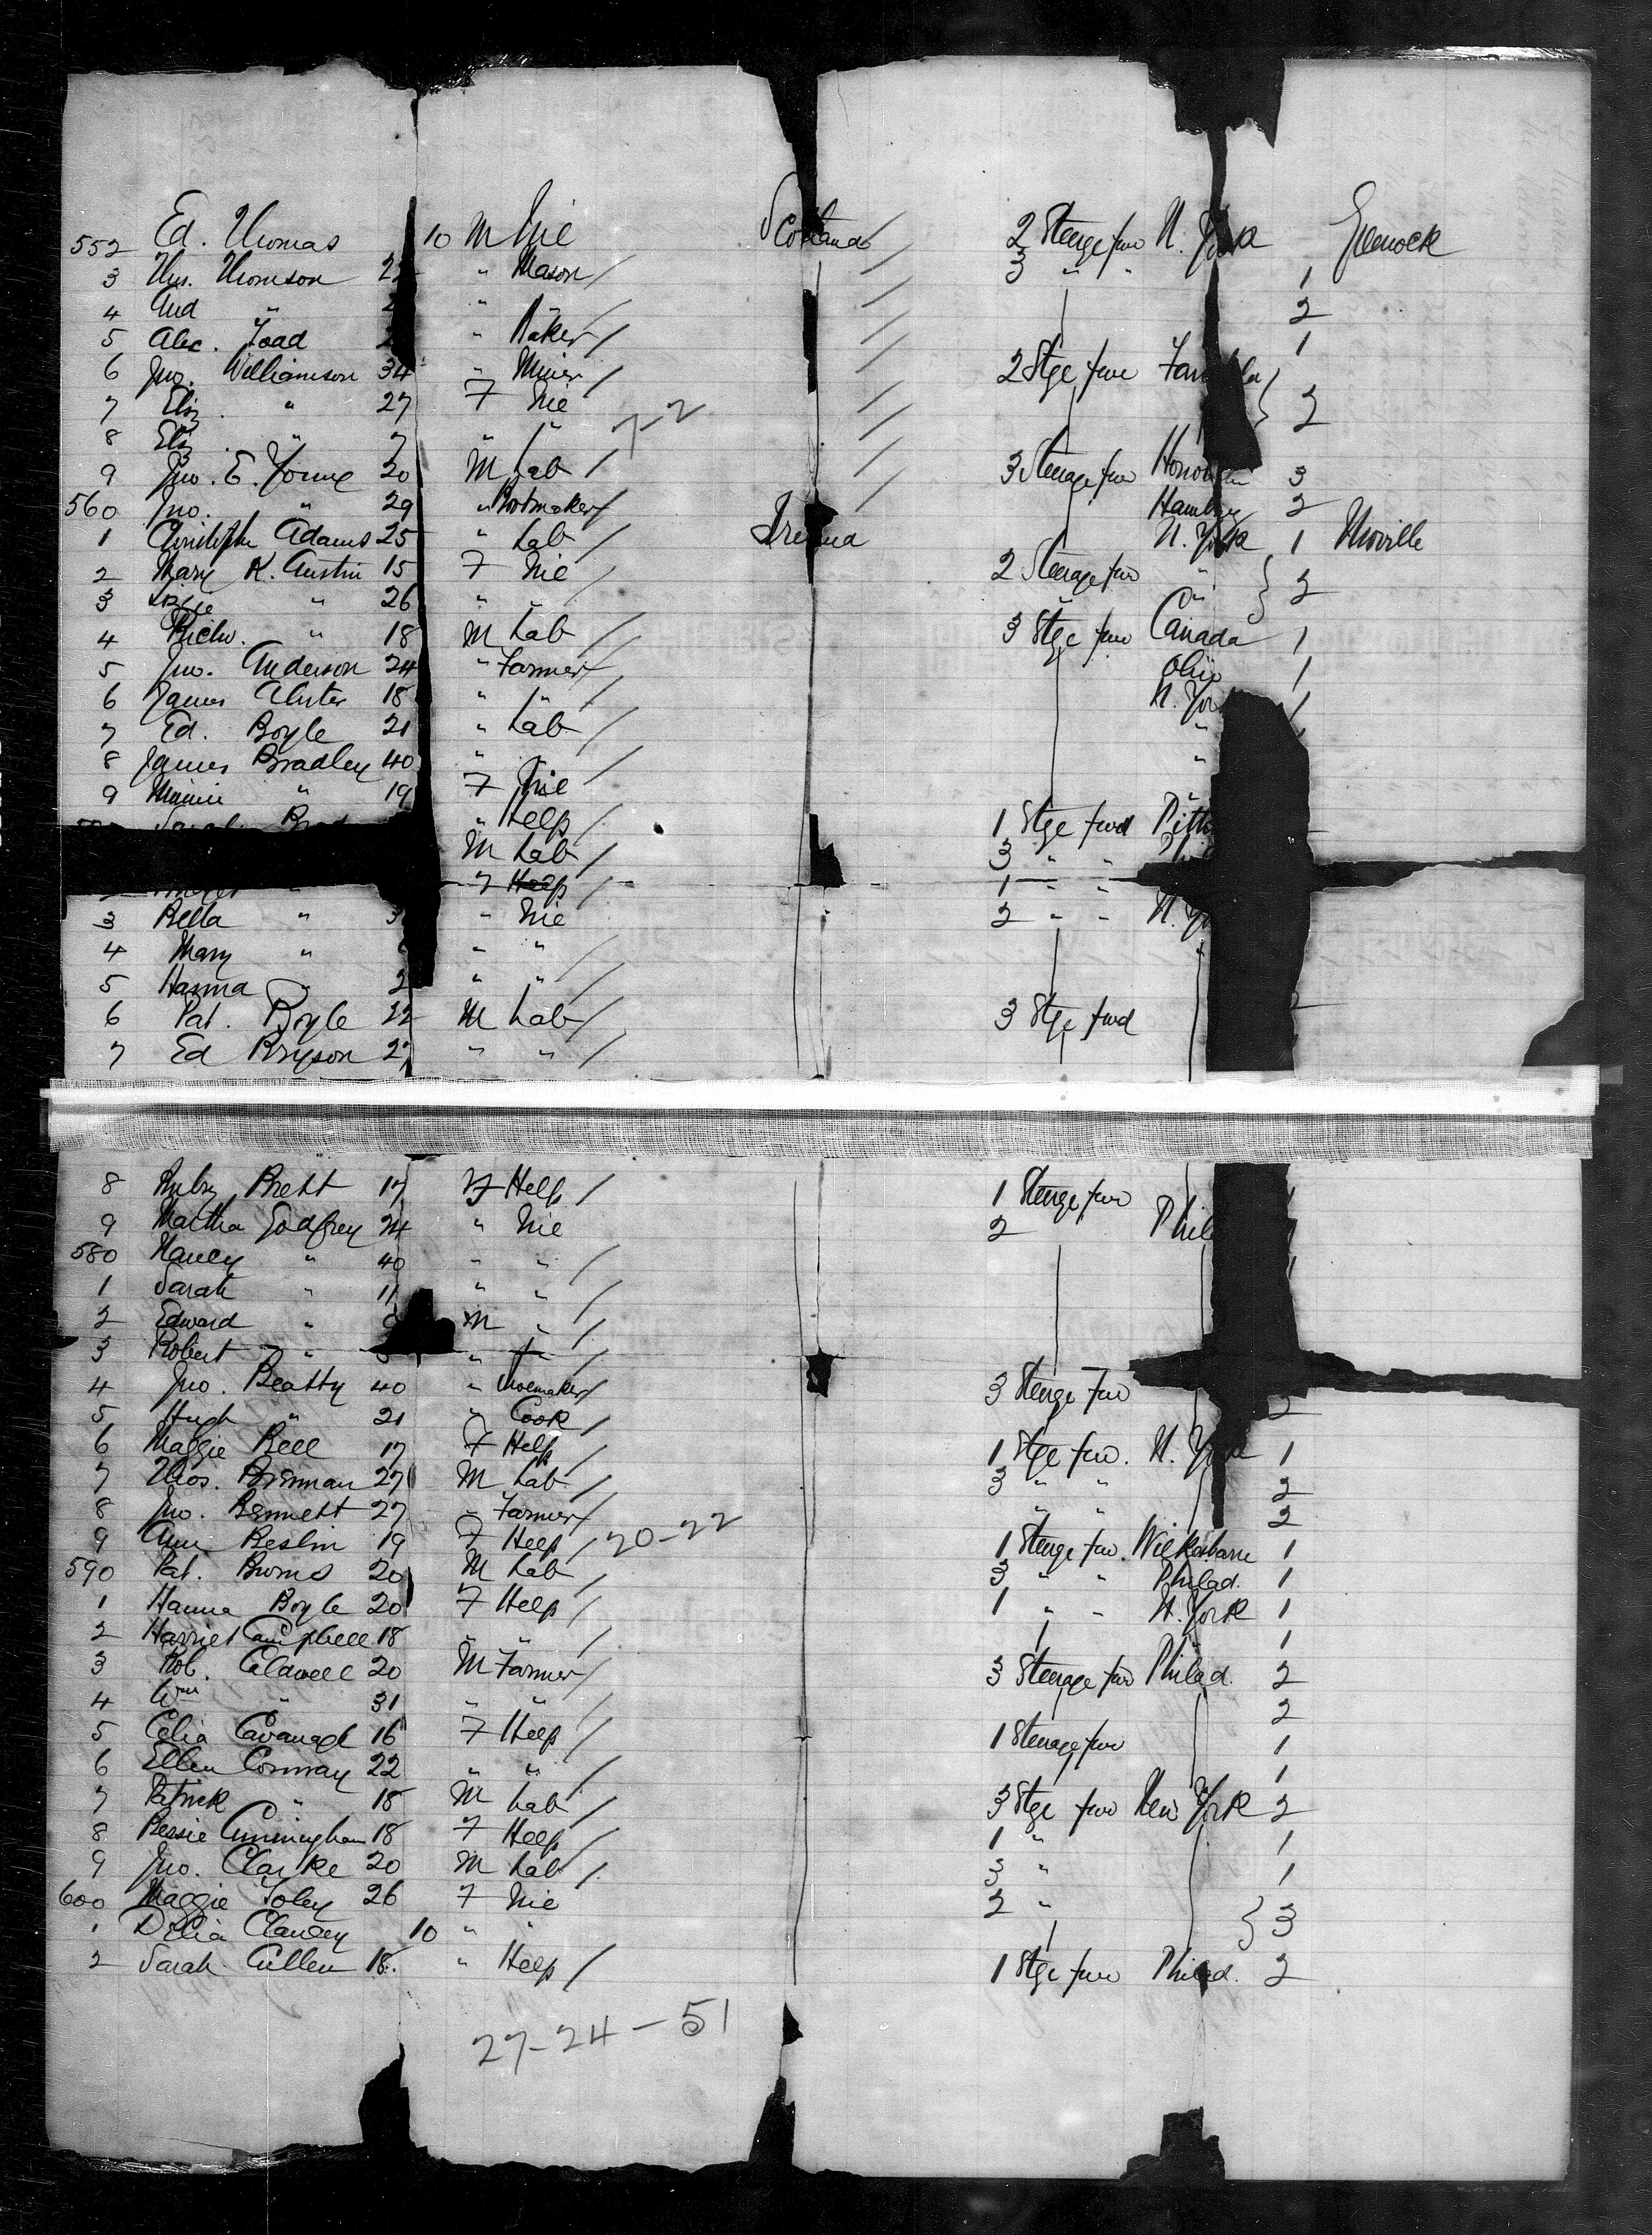 552 Ed. Thomas 10 M Nil Scotland 2 Steerage fwd N. York Greenock
3 Thos. Thomson " Mason 3 " " 1
4 And " " " 2
5 Alex. Toad " Baker 1
6 Jno. Williamson 34 " Miner 2 Stge fwd
7 Eliz. " 27 F Nil 2
8 Eliz " 7 " " 7-2
9 Jno. E. Young 20 M Lab 3 Steerage fwd 3
560 Jno. " 29 " Bootmaker 2
1 Christopher Adams 25 " Lab Ireland N. York 1 Moville
2 Mary K. Austin 15 F Nil 2 Steerage fwd " 2
3 Lizzie " 26 " " "
4 Richd. " 18 M Lab 3 Stge fwd Canada 1
5 Jno. Anderson 24 " Farmer Ohio 1
6 James 18 " " N. Yor 1
7 Ed. Boyle 21 " Lab "
8 James Bradley 40 " " "
9 Minnie " 19 F Nil "
Sarah Brad " Help 1 Stge fwd Pitts
M Lab 3 " "
" F Help 1 " "
3 Bella " 3 " Nil 2 " " N. Yo
4 Mary " " " "
5 Hanna " 2 " "
6 Pat. Boyle 22 M Lab 3 Stge fwd
7 Ed Bryson 27 " "
8 Ruby Brett 17 F Help 1 Steerage fwd
9 Martha Godfrey 24 " Nil 2 Phil
580 Nancy " 40 " "
1 Sarah " 11 " "
2 Edward " M "
3 Robert " " "
4 Jno. Beatty 40 " Shoemaker 3 Steerage fwd
5 Hugh " 21 " Cook 2
6 Maggie Bell 17 F Help 1 Stge fwd. N. York 1
7 Thos. Brennan 27 M Lab 3 " " 2
8 Jno. Bennett 27 " Farmer " " 2
9 Ann Beslin 19 F Help 20-22 1 Steerage fwd. Wilkesbarre 1
590 Pat. Burns 20 M Lab 3 " " Philad. 1
1 Hanna Boyle 20 F Help 1 " " N. York 1
2 Harriet Campbell 18 " " 1
3 Rob. Caldwell 20 M Farmer 3 Steerage fwd Philad. 2
4 Wm " 31 " " 2
5 Celia Cavanagh 16 F Help 1 Steerage fwd 1
6 Ellen Conway 22 " " 1
7 Patrick " 18 M Lab 3 Stge fwd New York 2
8 Bessie Cunningham 18 F Help 1 " 1
9 Jno. Clarke 20 M Lab 3 " 1
600 Maggie Foley 26 F Nil 2 " 3
1 Delia Clancy 10 " "
2 Sarah Cullen 18. " Help 1 Stge fwd Philad. 2
27-24-51